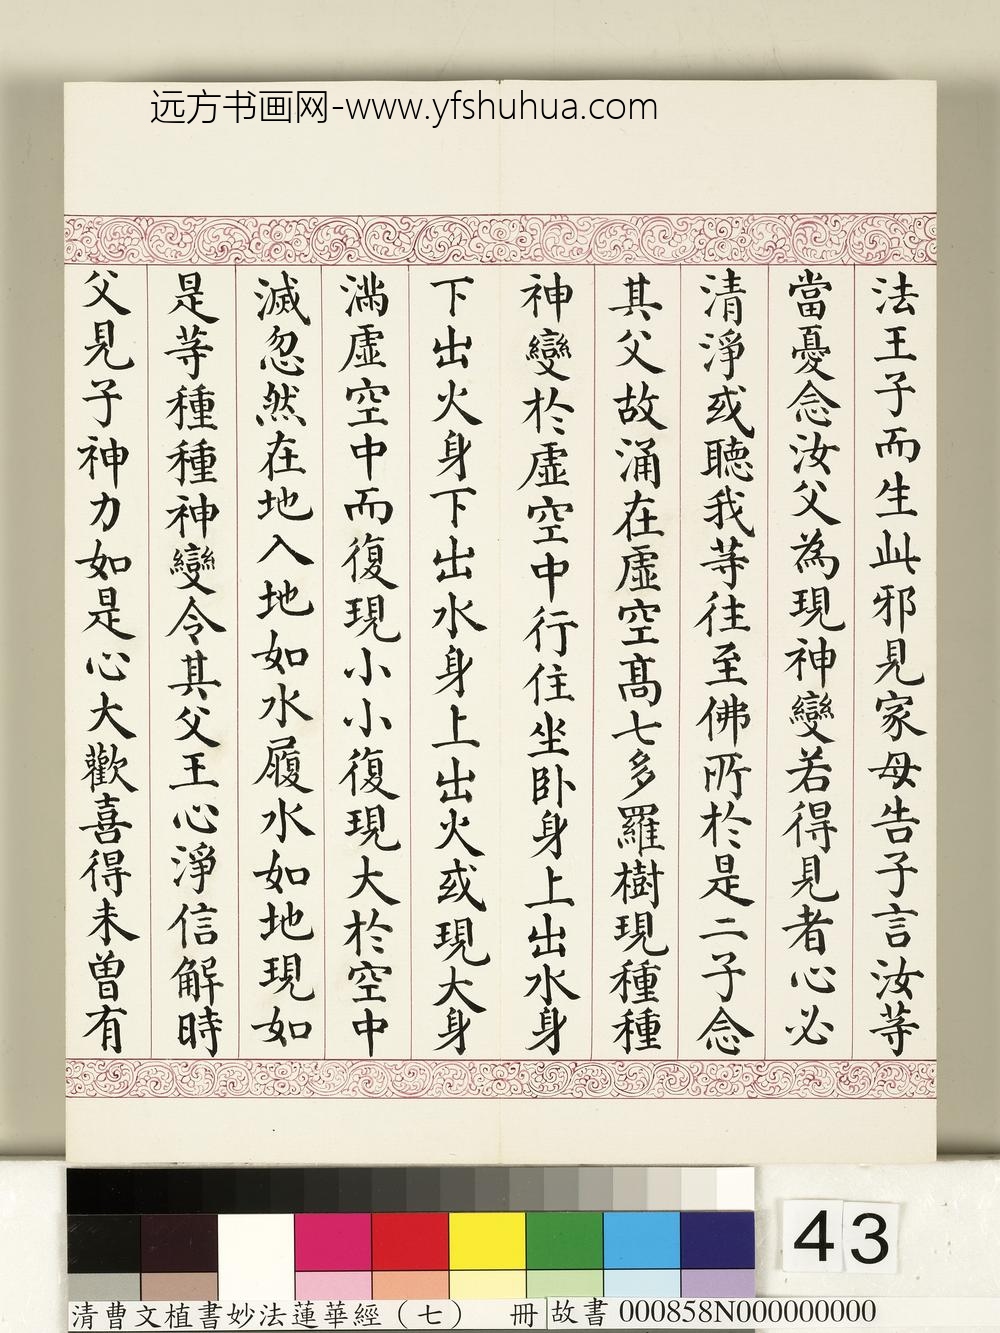 远方书画网-www.yfshuhua.com
法王子而生此邪見家母告子言汝等
當憂念汝父為現神變若得見者心必
清淨或聽我等往至佛所於是二子念
其父故涌在虛空高七多羅樹現種種
神變於虛空中行住坐卧身上出水身
下出火身下出水身上出火或現大身
滿虛空中而復現小小復現大於空中
滅忽然在地入地如水履水如地現如
是等種種神變令其父王心淨信解時
父見子神力如是心大歡喜得未曾有
43
清曹文植書妙法蓮華經（七） 冊 故書 000858N000000000